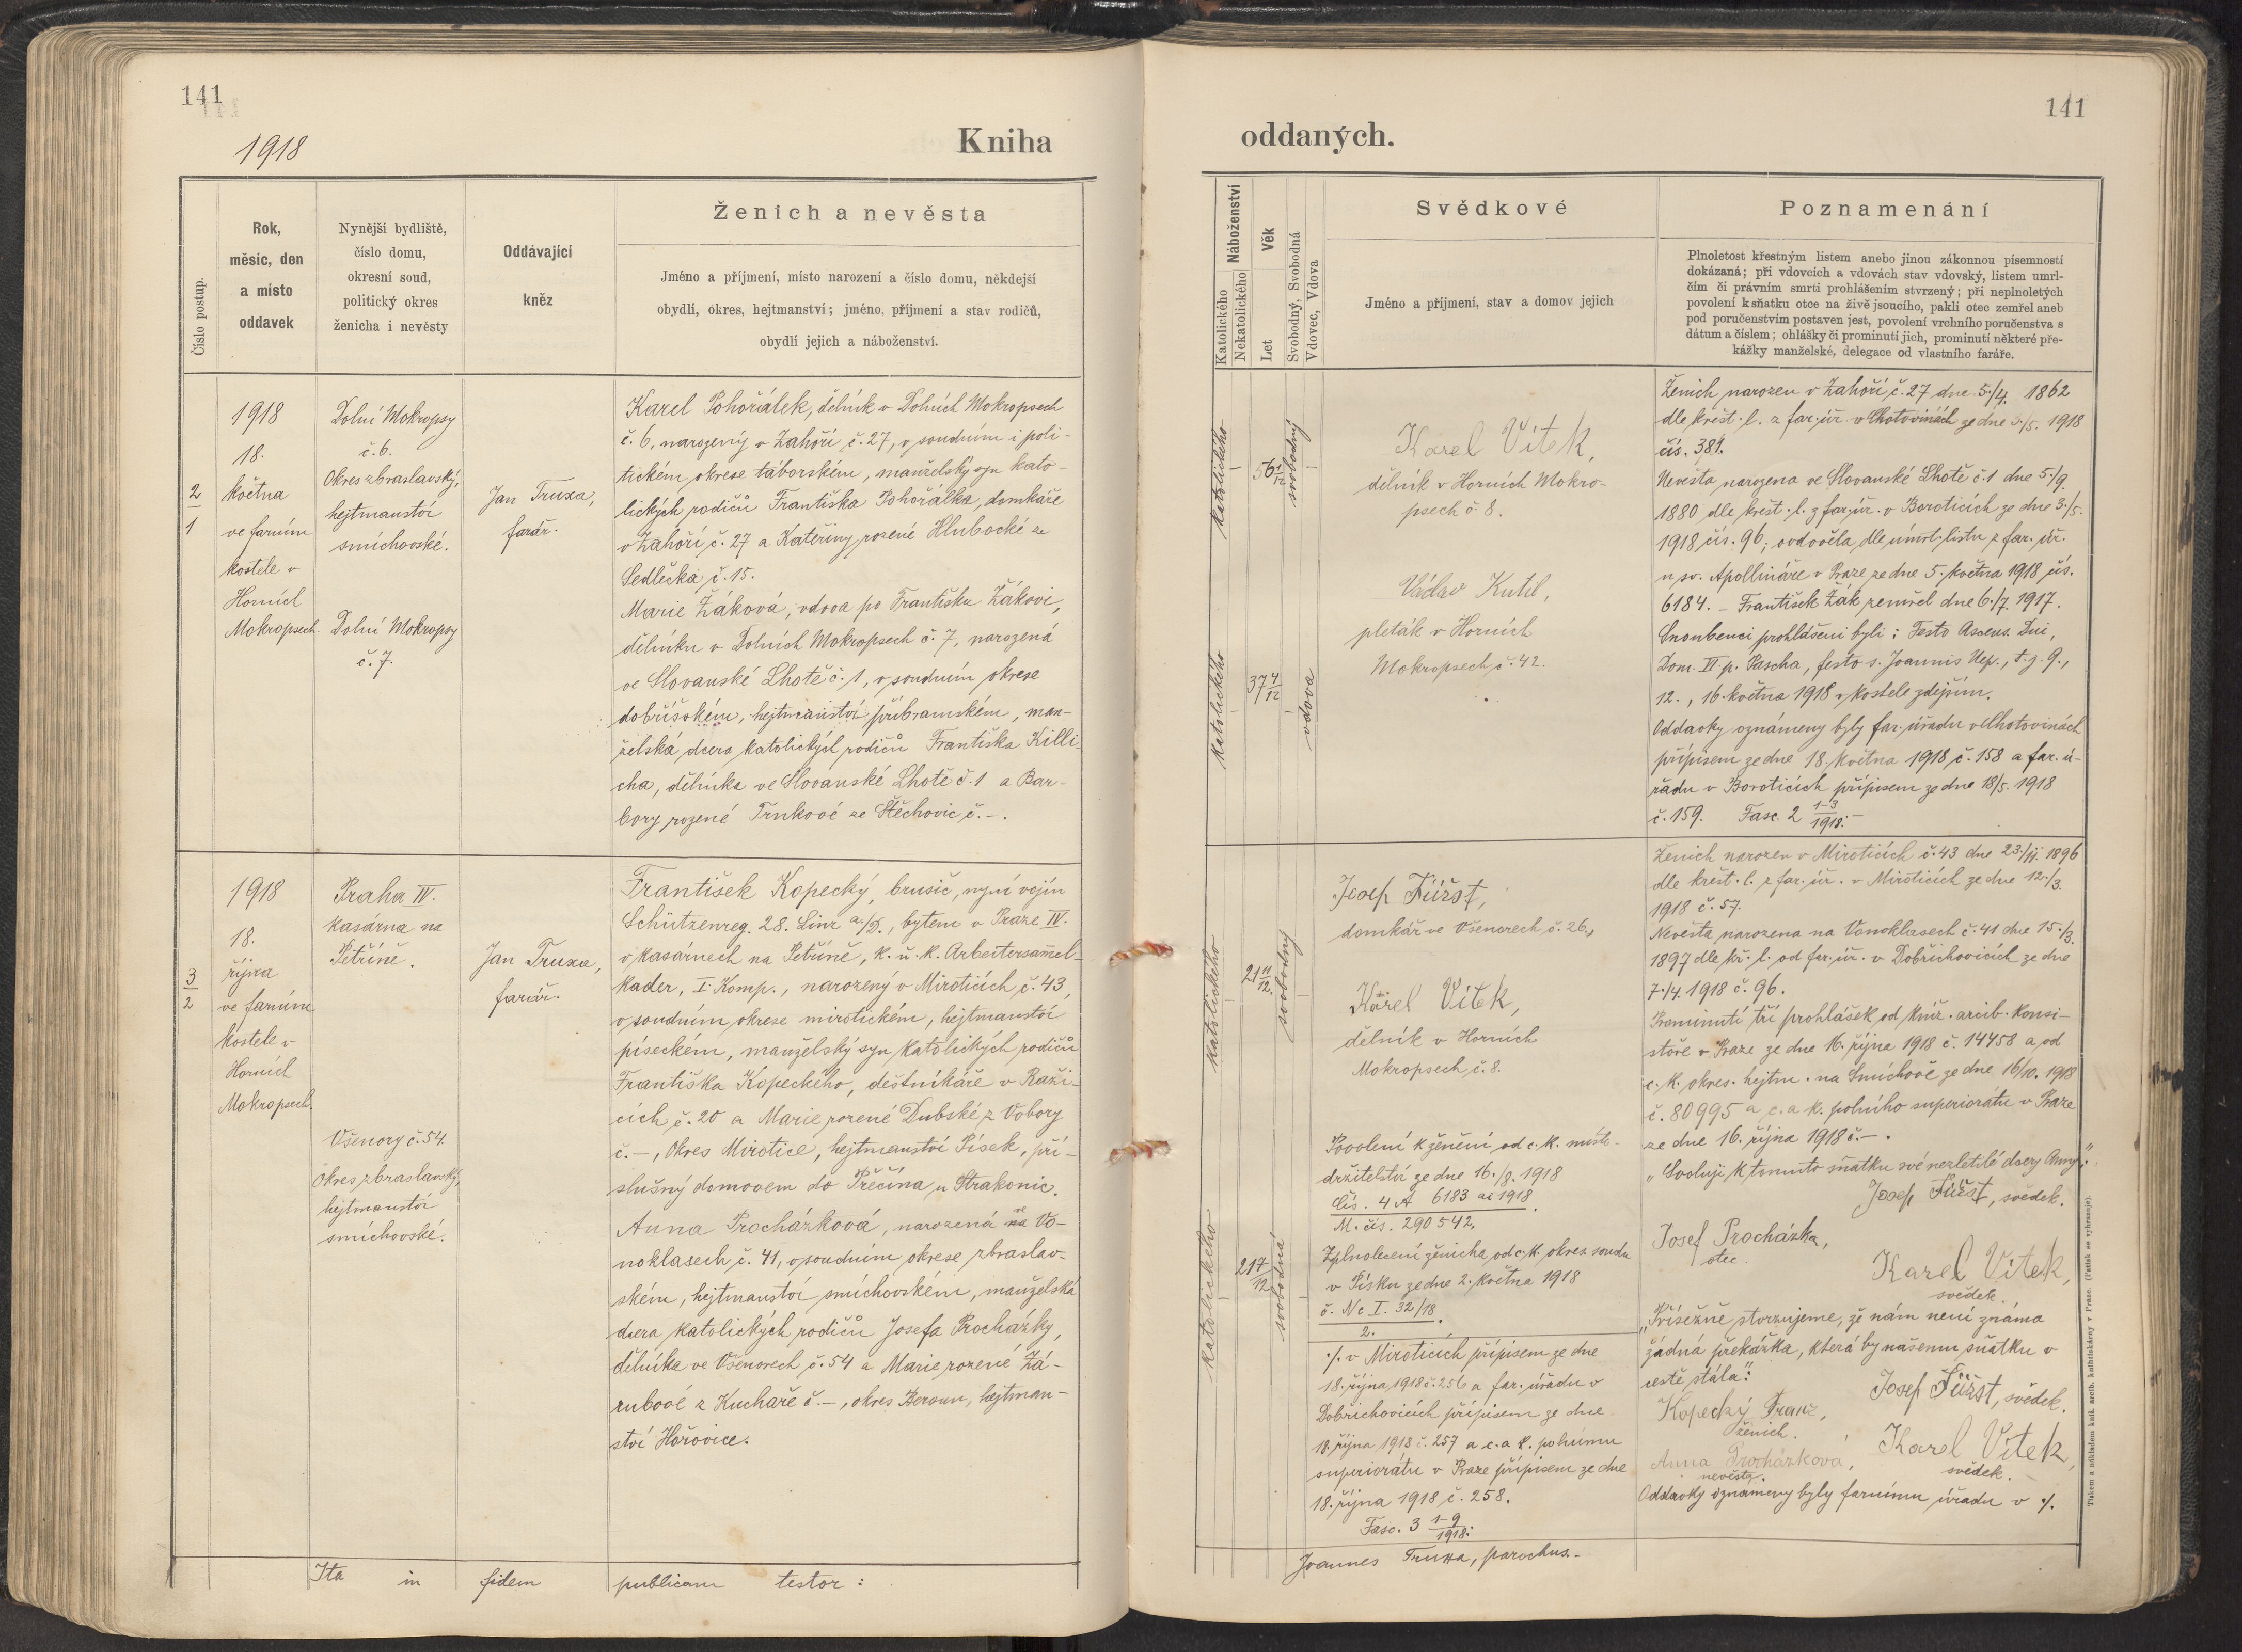 141
1918
Kniha
Číslo postup.
Rok,
měsíc, den
a místo
oddavek
Nynější bydliště,
číslo domu,
okresní soud,
politický okres
ženicha i nevěsty
Oddávající
kněz
Ženich a nevěsta
Jméno a příjmení, místo narození a číslo domu, někdejší
obydlí, okres, hejtmanství; jméno, příjmení a stav rodičů,
obydlí jejich a náboženství.
2
1
1918
18.
května
ve farním
kostele v
Horních
Mokropsech.
Dolní Mokropsy
č. 6.
Okres zbraslavský,
hejtmanství
smíchovské.
Dolní Mokropsy
č. 7.
Jan Truxa,
farář.
Karel Pohořálek, dělník v Dolních Mokropsech
č. 6, narozený v Zahoří č. 27, v soudním i poli-
tickém okrese táborském, manželský syn kato-
lických rodičů Františka Pohořálka, domkáře
v Zahoří č. 27 a Kateřiny rozené Hlubocké ze
Sedlečka č. 15.
Marie Žáková, vdova po Františku Žákovi,
dělníku v Dolních Mokropsech č. 7, narozená
ve Slovanské Lhotě č. 1, v soudním okrese
dobříšském, hejtmanství příbramském, man-
želská dcera katolických rodičů Františka Killi-
cha, dělníka ve Slovanské Lhotě č. 1 a Bar-
bory rozené Trnkové ze Štěchovic č. -.
3
2
1918
18.
října
ve farním
kostele v
Horních
Mokropsech.
Praha IV.
kasárna na
Petříně.
Všenory č. 54.
Okres zbraslavský,
hejtmanství
smíchovské.
Jan Truxa,
farář.
František Kopecký, brusič, nyní vojín
Schützenreg. 28. Linz a/D., bytem v Praze IV.
v kasárnech na Petříně, k. u. k. Arbeitersam̄el-
kader, I. Komp., narozený v Miroticích č. 43,
v soudním okrese mirotickém, hejtmanství
píseckém, manželský syn katolických rodičů
Františka Kopeckého, deštníkáře v Raži-
cích č. 20 a Marie rozené Dubské z Vobory
č. -, okres Mirotice, hejtmanství Písek, pří-
slušný domovem do Přečína u Strakonic.
Anna Procházková, narozená na Vo-
noklasech č. 41, v soudním okrese zbraslav-
ském, hejtmanství smíchovském, manželská
dcera katolických rodičů Josefa Procházky,
dělníka ve Všenorech č. 54 a Marie rozené Zá-
rubové z Kuchaře č. -, okres Beroun, hejtman-
ství Hořovice.
Ita in fidem publicam testor:
141
oddaných.
Katolického
Nekatolického
Náboženství
Let
Věk
Svobodný, Svobodná
Vdovec, Vdova
Svědkové
Jméno a příjmení, stav a domov jejich
Poznamenání
Plnoletost křestným listem anebo jinou zákonnou písemností
dokázaná; při vdovcích a vdovách stav vdovský, listem umrl-
čím či právním smrti prohlášením stvrzený; při neplnoletých
povolení k sňatku otce na živě jsoucího, pakli otec zemřel aneb
pod poručenstvím postaven jest, povolení vrchního poručenstva s
dátum a číslem; ohlášky či prominutí jich, prominutí některé pře-
kážky manželské, delegace od vlastního faráře.
katolického
56 1/12
svobodný
katolického
37 7/12
vdova
Karel Vítek,
dělník v Horních Mokro-
psech č. 8.
Václav Kutil,
pleták v Horních
Mokropsech č. 42.
Ženich narozen v Zahoří č. 27 dne 5./4. 1862
dle křest. l. z far. úř. v Chotovinách ze dne 3./5. 1918
čís. 381.
Nevěsta narozena ve Slovanské Lhotě č. 1 dne 5./9.
1880 dle křest. l. z far. úř. v Boroticích ze dne 3./5.
1918 čís. 96; ovdověla dle úmrt. listu z far. úř.
u sv. Apollináře v Praze ze dne 5. května 1918 čís.
6184. - František Žák zemřel dne 6./7. 1917.
Snoubenci prohlášeni byli: Festo Ascens. Dni,
Dom. VI. p. Pascha, festo s. Joannis Nep., t. j. 9.,
12., 16. května 1918 v kostele zdejším.
Oddavky oznámeny byly far. úřadu v Chotovinách
přípisem ze dne 18. května 1918 č. 158 a far. ú-
řadu v Boroticích přípisem ze dne 18/5. 1918
č. 159. Fasc. 2 1-3/1918. -
katolického
21 11/12.
svobodný
katolického
21 7/12
svobodná
Josef Fürst,
domkář ve Všenorech č. 26.,
Karel Vítek,
dělník v Horních
Mokropsech č. 8.
Povolení k ženění od c. k. místo-
držitelství ze dne 16./8. 1918
Čís. 4 A 6183 ai 1918.
M. čís. 290542.
Zplnoletení ženicha od c. k. okres. soudu
v Písku ze dne 2. května 1918
č. Nc I. 32/18.
2.
./. v Miroticích přípisem ze dne
18. října 1918 č. 256 a far. úřadu v
Dobřichovicích přípisem ze dne
18. října 1918 č. 257 a c. a k. polnímu
superiorátu v Praze přípisem ze dne
18. října 1918 č. 258.
Fasc. 3 1-9/1918.
Ženich narozen v Miroticích č. 43 dne 23./11. 1896
dle křest. l. z far. úř. v Miroticích ze dne 12./3.
1918 č. 57.
Nevěsta narozena na Vonoklasech č. 41 dne 15./3.
1897 dle kř. l. od far. úř. v Dobřichovicích ze dne
7./4. 1918 č. 96.
Prominutí tří prohlášek od kníž. arcib. konsi-
stoře v Praze ze dne 16. října 1918 č. 14458 a od
c. k. okres. hejtm. na Smíchově ze dne 16/10. 1918
č. 80995 a c. a k. polního superiorátu v Praze
ze dne 16. října 1918 č. -.
„Svoluji k tomuto sňatku své nezletilé dcery Anny“:
Josef Fürst, svědek.
Josef Procházka,
otec.
Karel Vítek,
svědek.
„Přísežně stvrzujeme, že nám není známa
žádná překážka, která by našemu sňatku v
cestě stála“:
Josef Fürst, svědek.
Kopecký Franz,
ženich.
Karel Vítek,
svědek.
Anna Procházková,
nevěsta.
Oddavky oznámeny byly farnímu úřadu v ./.
Joannes Truxa, parochus. -
Tiskem a nákladem kníž. arcib. knihtiskárny v Praze. (Patisk se vyhrazuje).